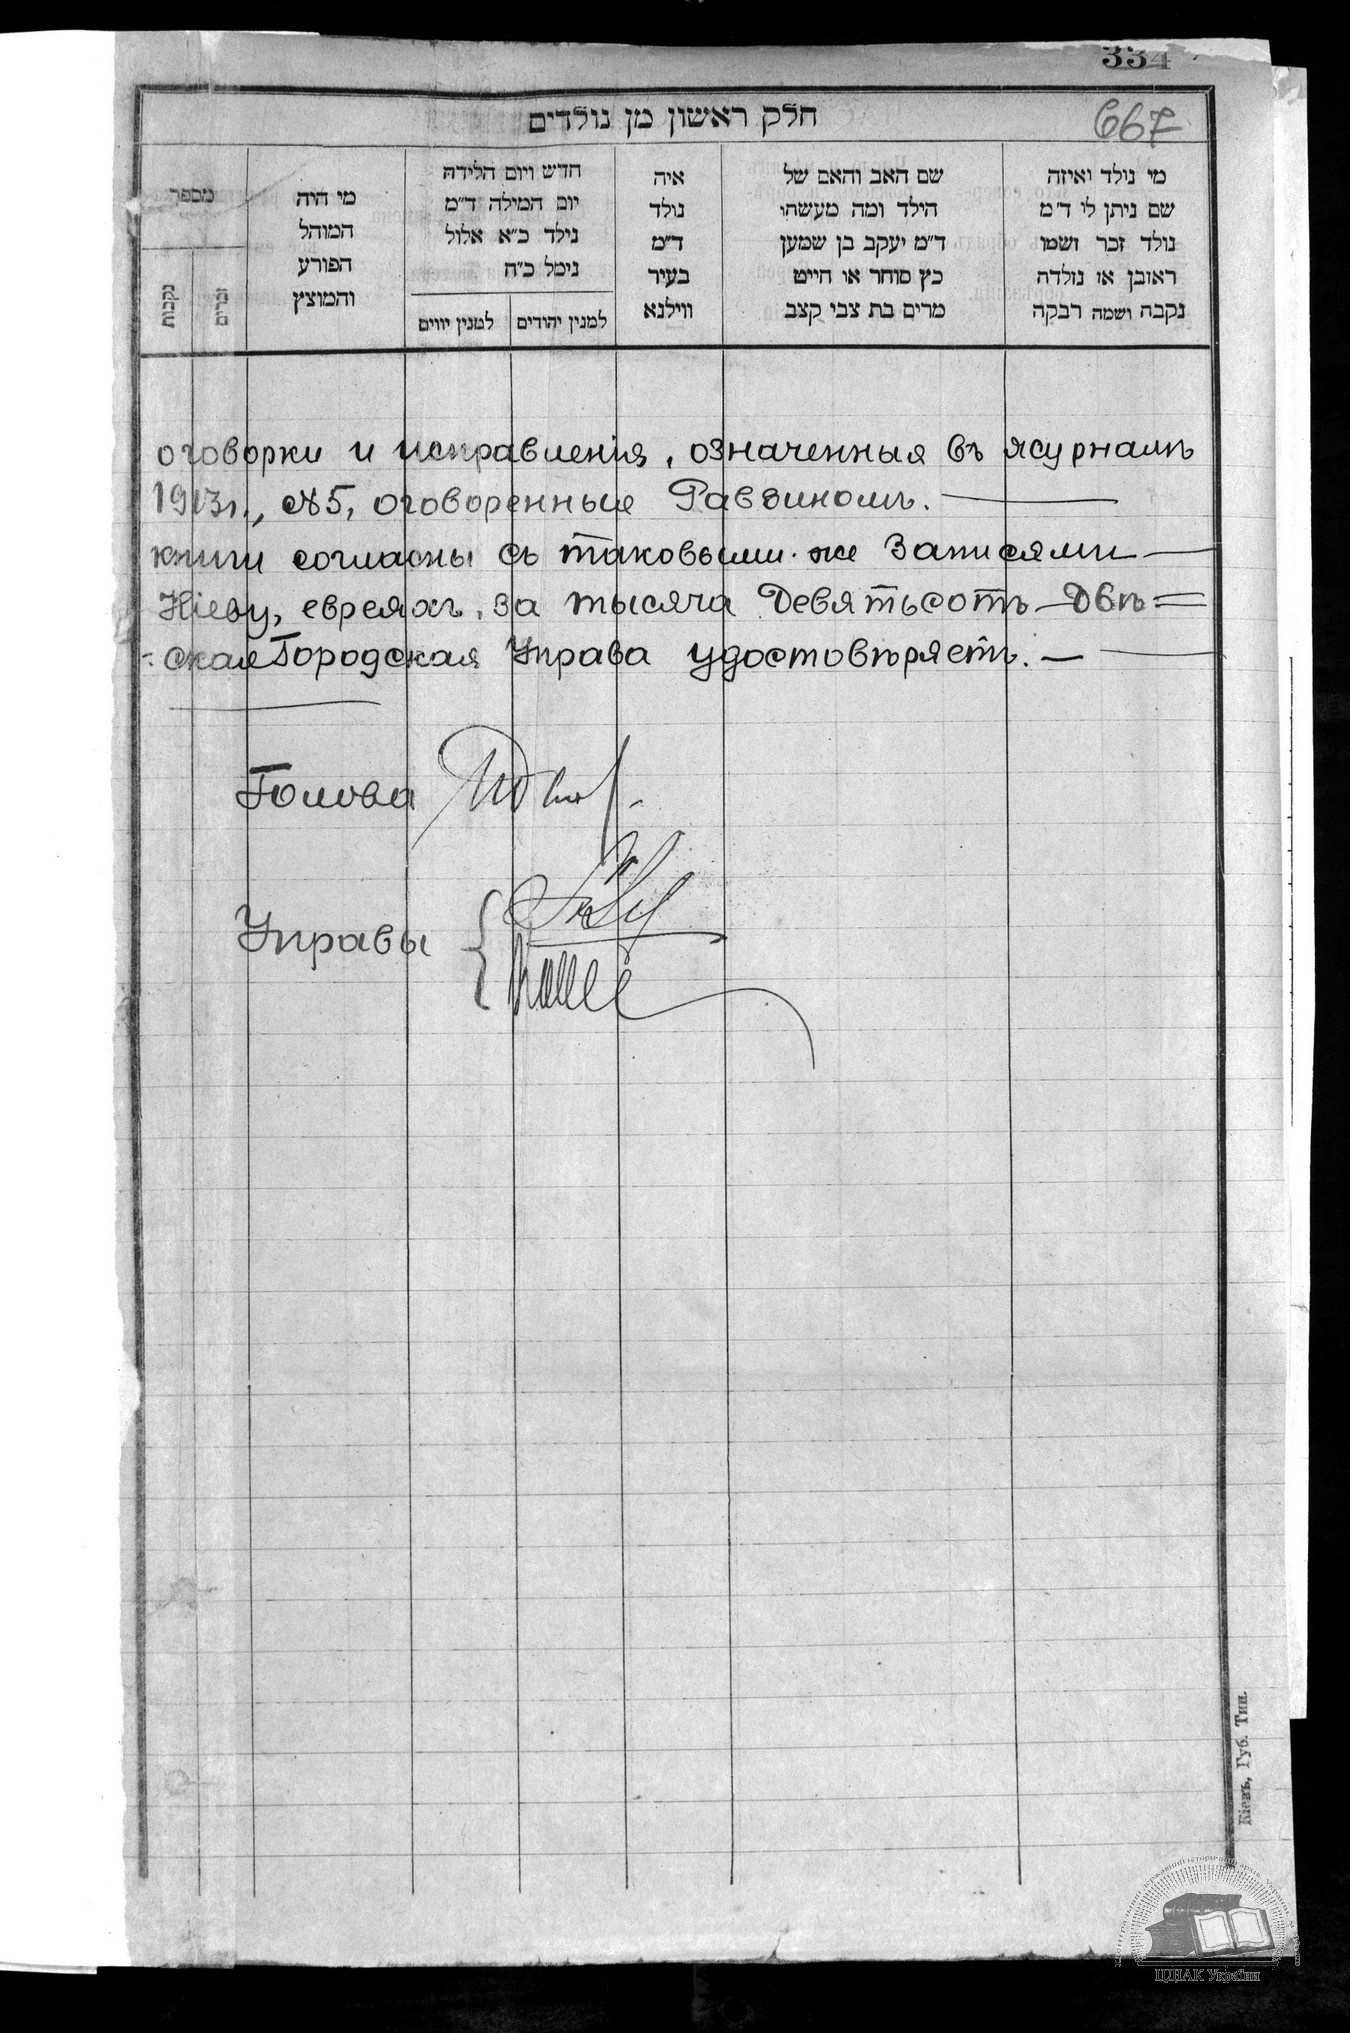 334
667
חלק ראשון מן נולדים
מי נולד ואיזה
שם ניתן לי ד״מ
נולד זכר ושמו
ראובן או נולדה
נקבה ושמה רבקה
שם האב והאם של
הילד ומה מעשהו
ד״מ יעקב בן שמען
כץ סוחר או חייט
מרים בת צבי קצב
איה
נולד
ד״מ
בעיר
ווילנא
חדש ויום הלידה
יום המילה ד״מ
נילד כ״א אלול
נימל כ״ח
למנין יהודים
למנין יווים
מי היה
המוהל
הפורע
והמוצץ
מספר
זכרים
נקבות
оговорки и исправленія, означенныя въ журналѣ
1913г., №5, оговоренные Раввиномъ.
книги согласны съ таковыми же записями
Кіеву, евреяхъ, за тысяча девятьсотъ двѣ=
ская Городская Управа удостовѣряетъ.
Голова
Управы
Кіевъ, Губ. Тип.
ЦДІАК України